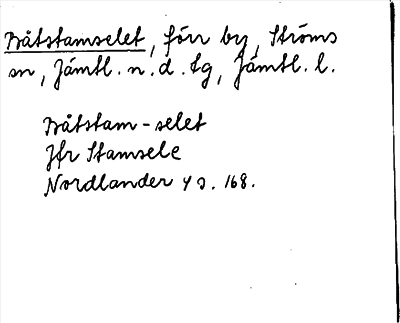 Båtstamselet, förr by, Ströms
sn, Jämtl. n. d. tg, Jämtl. l.
Båtstam-selet
Jfr Stamsele
Nordlander 4 s. 168.